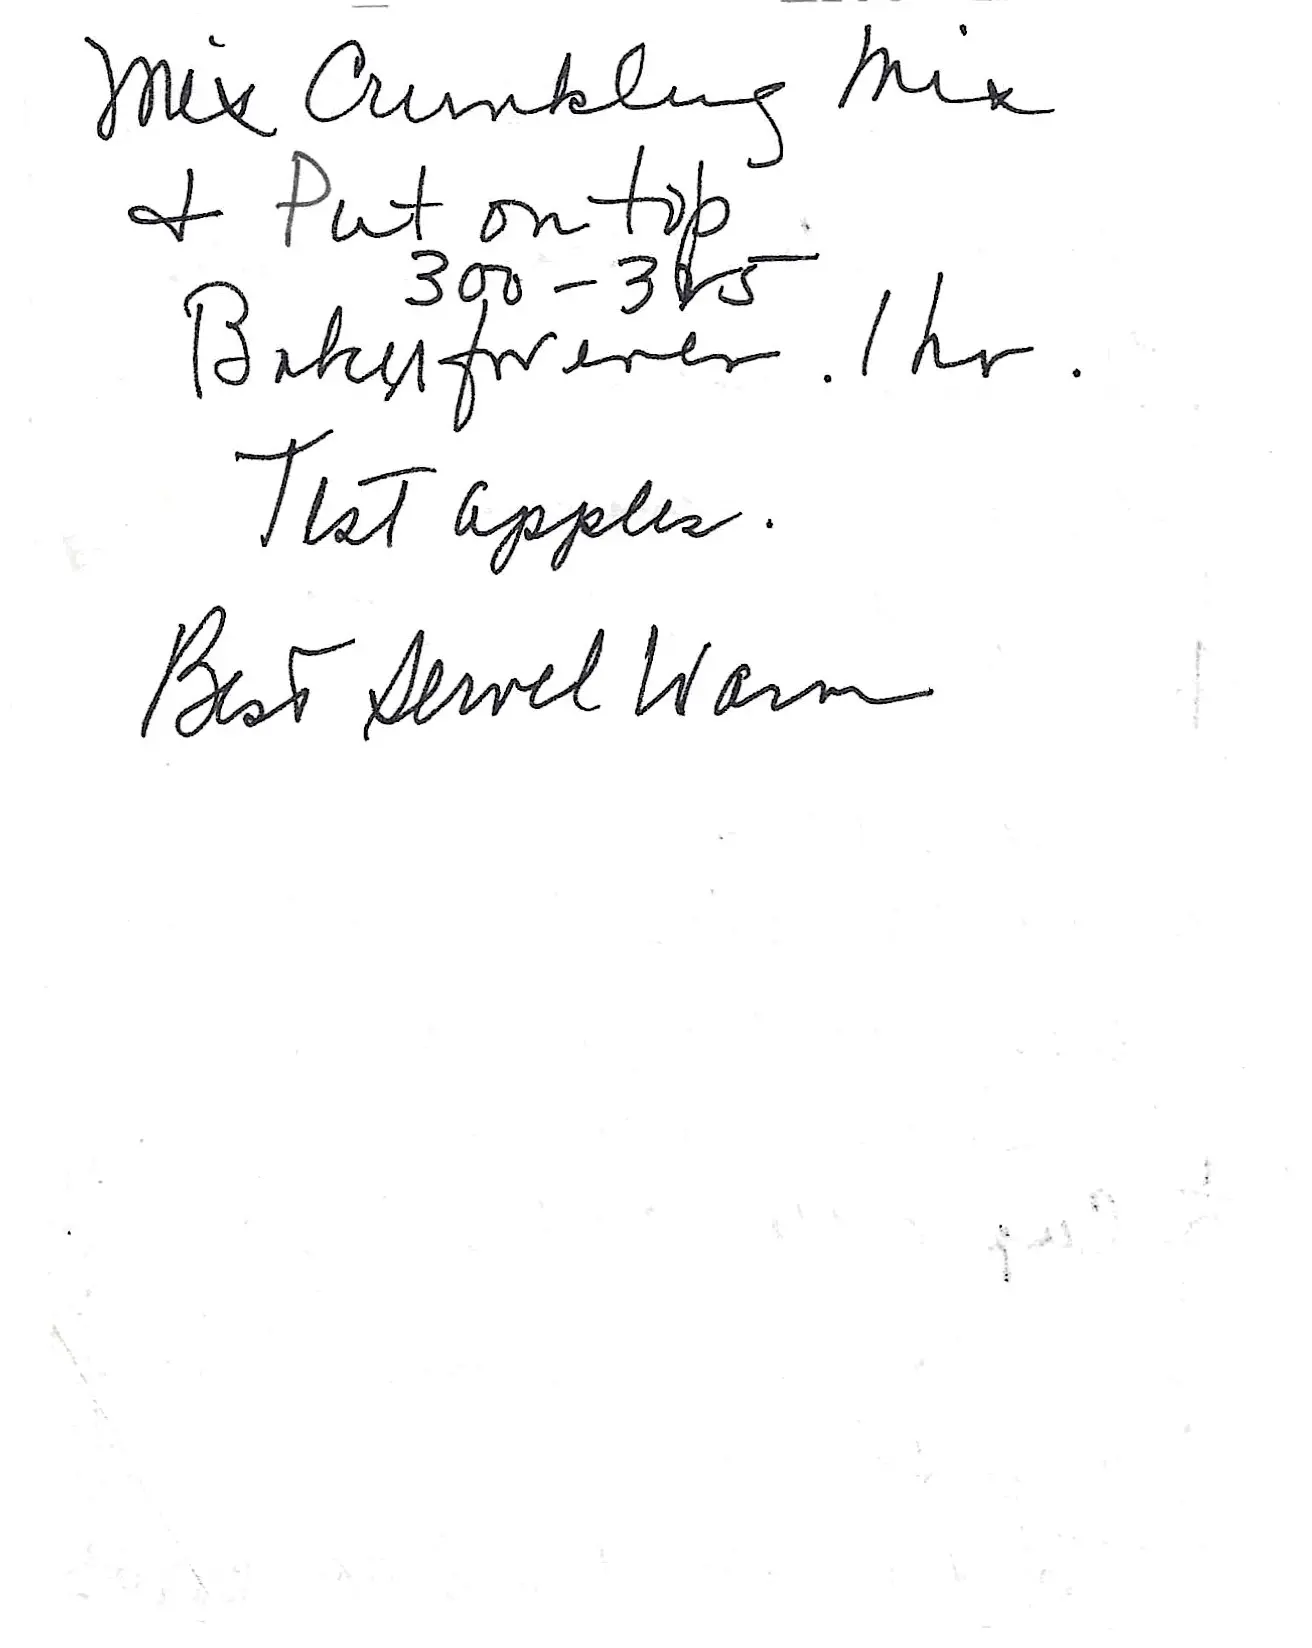 Mix Crumbling Mix
& Put on top
300 - 325
Bakes forever. 1 hr.
Test apples.
Best Served Warm